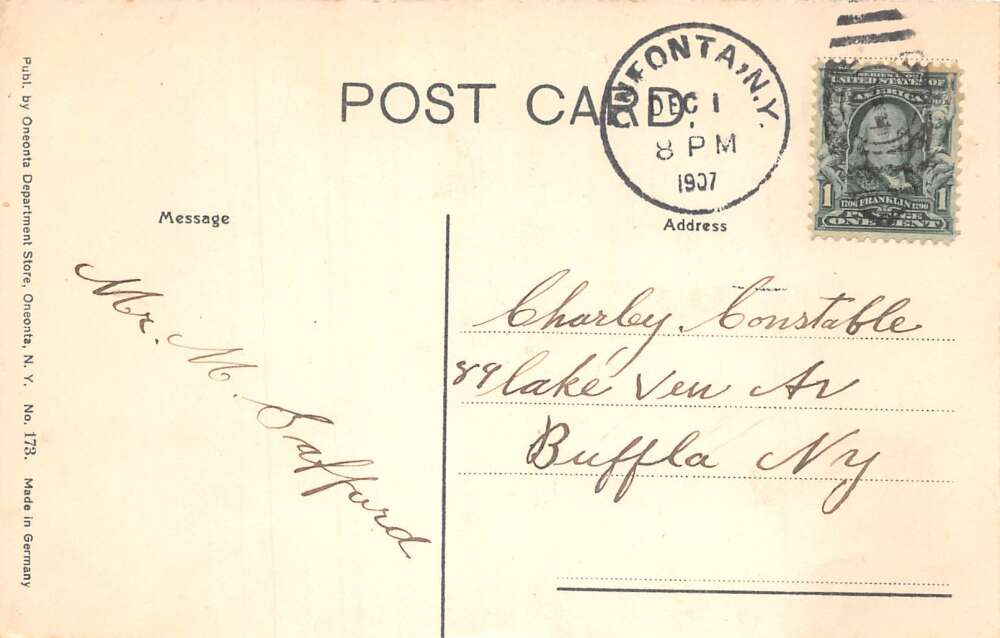 Publ. by Oneonta Department Store, Oneonta, N. Y. No. 173. Made in Germany
POST CARD.
ONEONTA, N.Y.
DEC 1
8 PM
1907
SERIES 1902
UNITED STATES OF
AMERICA
1706 FRANKLIN 1790
1 POSTAGE 1
ONE CENT
Message
Mr. M. Safford
Address
Charley Constable
89 lake Veu Av
Buffla Ny